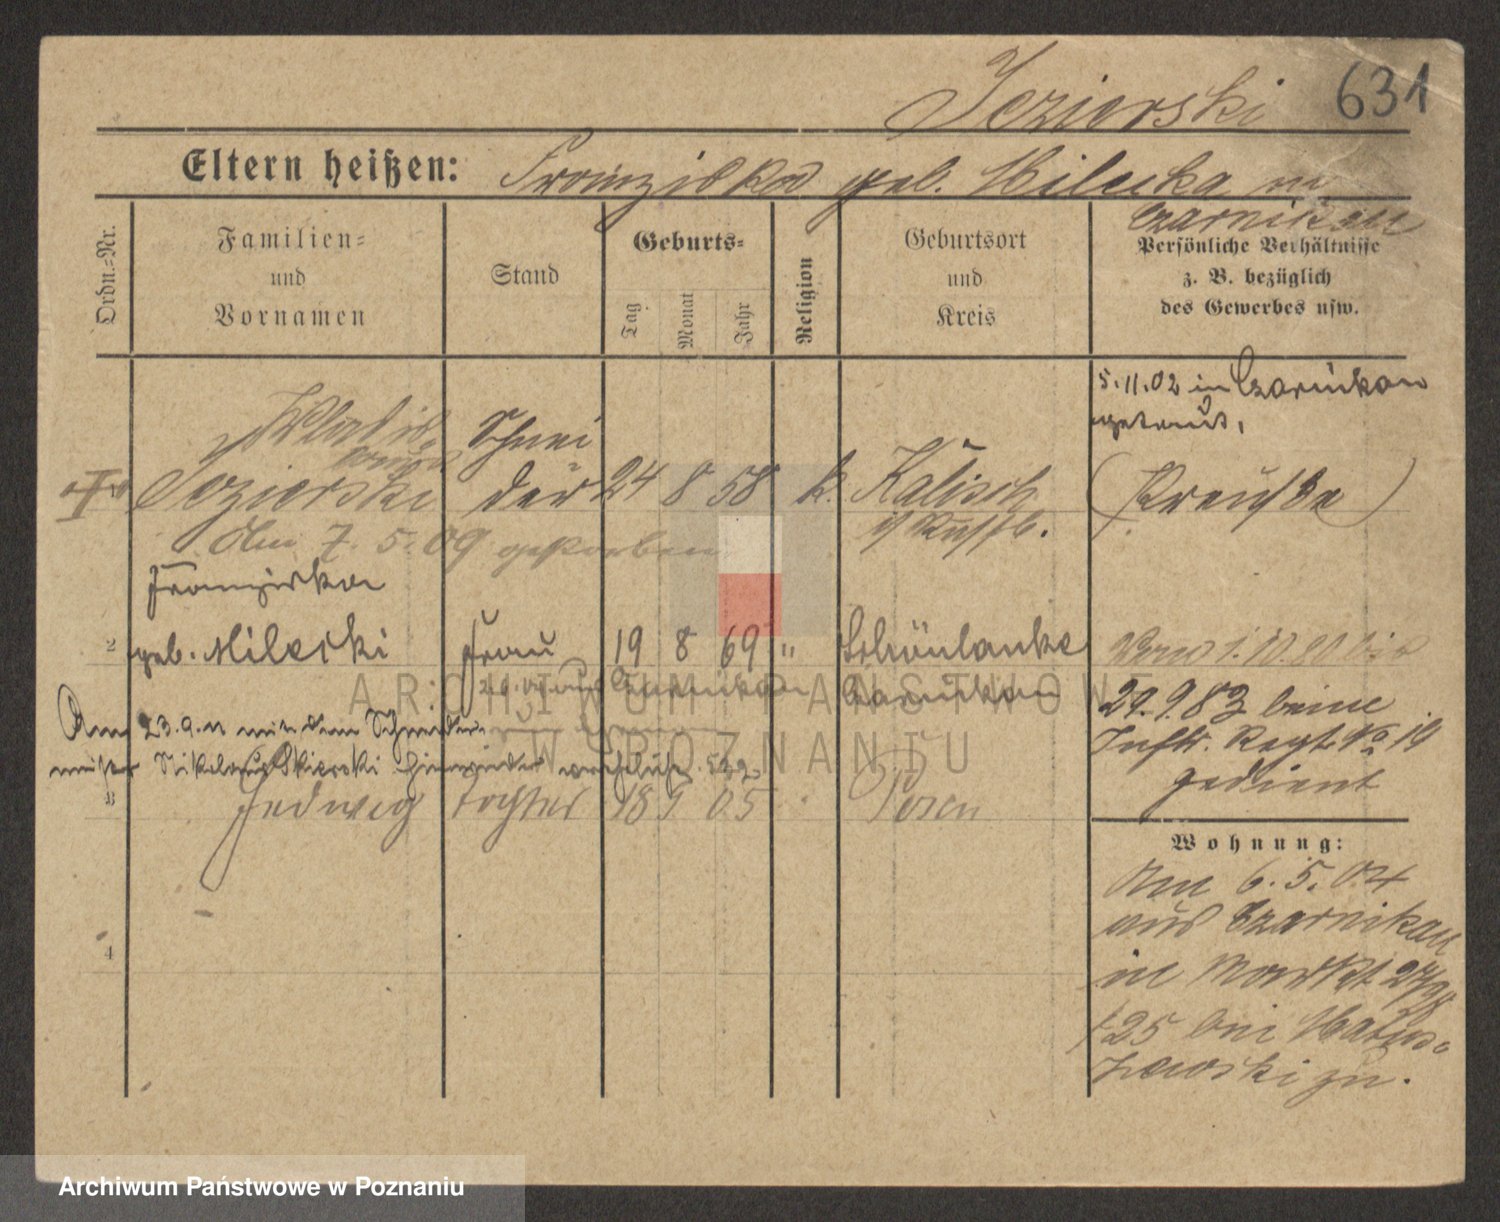 Jezierski 631
Eltern heißen: Franziska geb. Milecka in
Czarnikau
Ordn.-Nr.
Familien-
und
Vornamen
Stand
Geburts-
Tag
Monat
Jahr
Religion
Geburtsort
und
Kreis
Persönliche Verhältnisse
z. B. bezüglich
des Gewerbes usw.
5.11.02 in Czarnikau
getraut,
Wladis-
Jezierski
Schnei
der
24 8 58 k.
Kalisch
i/ Russl.
(Preuße)
Am 7. 5. 09 gestorben
Franziska
2 geb. Milecki Frau 19 8 69 " Schönlanke
Czarnikau
Czarnikau
1.10.80 bis
29.9.83 beim
Inftr. Regt. No 19
gedient
Am 23.9.11 mit dem Schneider-
meister Nikolaus Skierski
3 Hedwig Tochter 18 9 05 Posen
4
Wohnung:
Am 6. 5. 04
aus Czarnikau
in Markt
bei
zewski zu.
ARCHIWUM PAŃSTWOWE
W POZNANIU
Archiwum Państwowe w Poznaniu